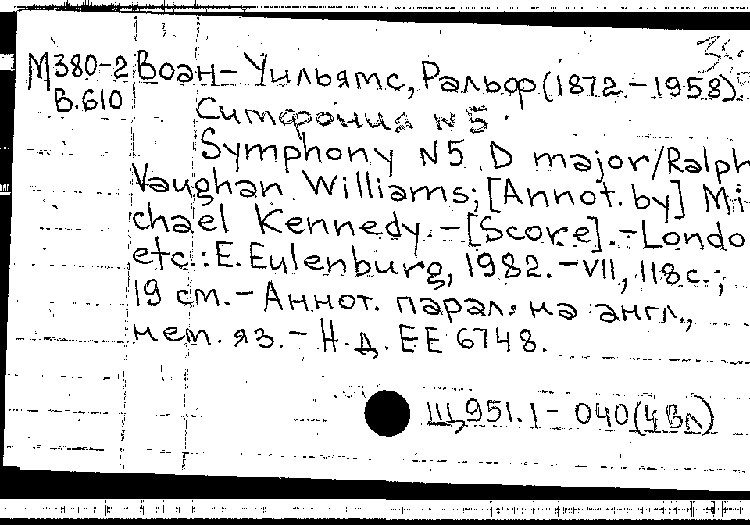 М380-2 Воан-Уильямс, Ральф (1872.-1958).
В.610
Симфония N 5.
Symphony N5 D major/Ralph
Vaughan Williams; [Annot. by] Mi-
chael Kennedy.-[Score].-Londo
etc.: E. Eulenburg, 1982.-VII, 118 с.;
19 см.-Аннот. парал. на англ.,
нем. яз.-Н.д. EE 6748.
Щ951.1-040(4Вл)